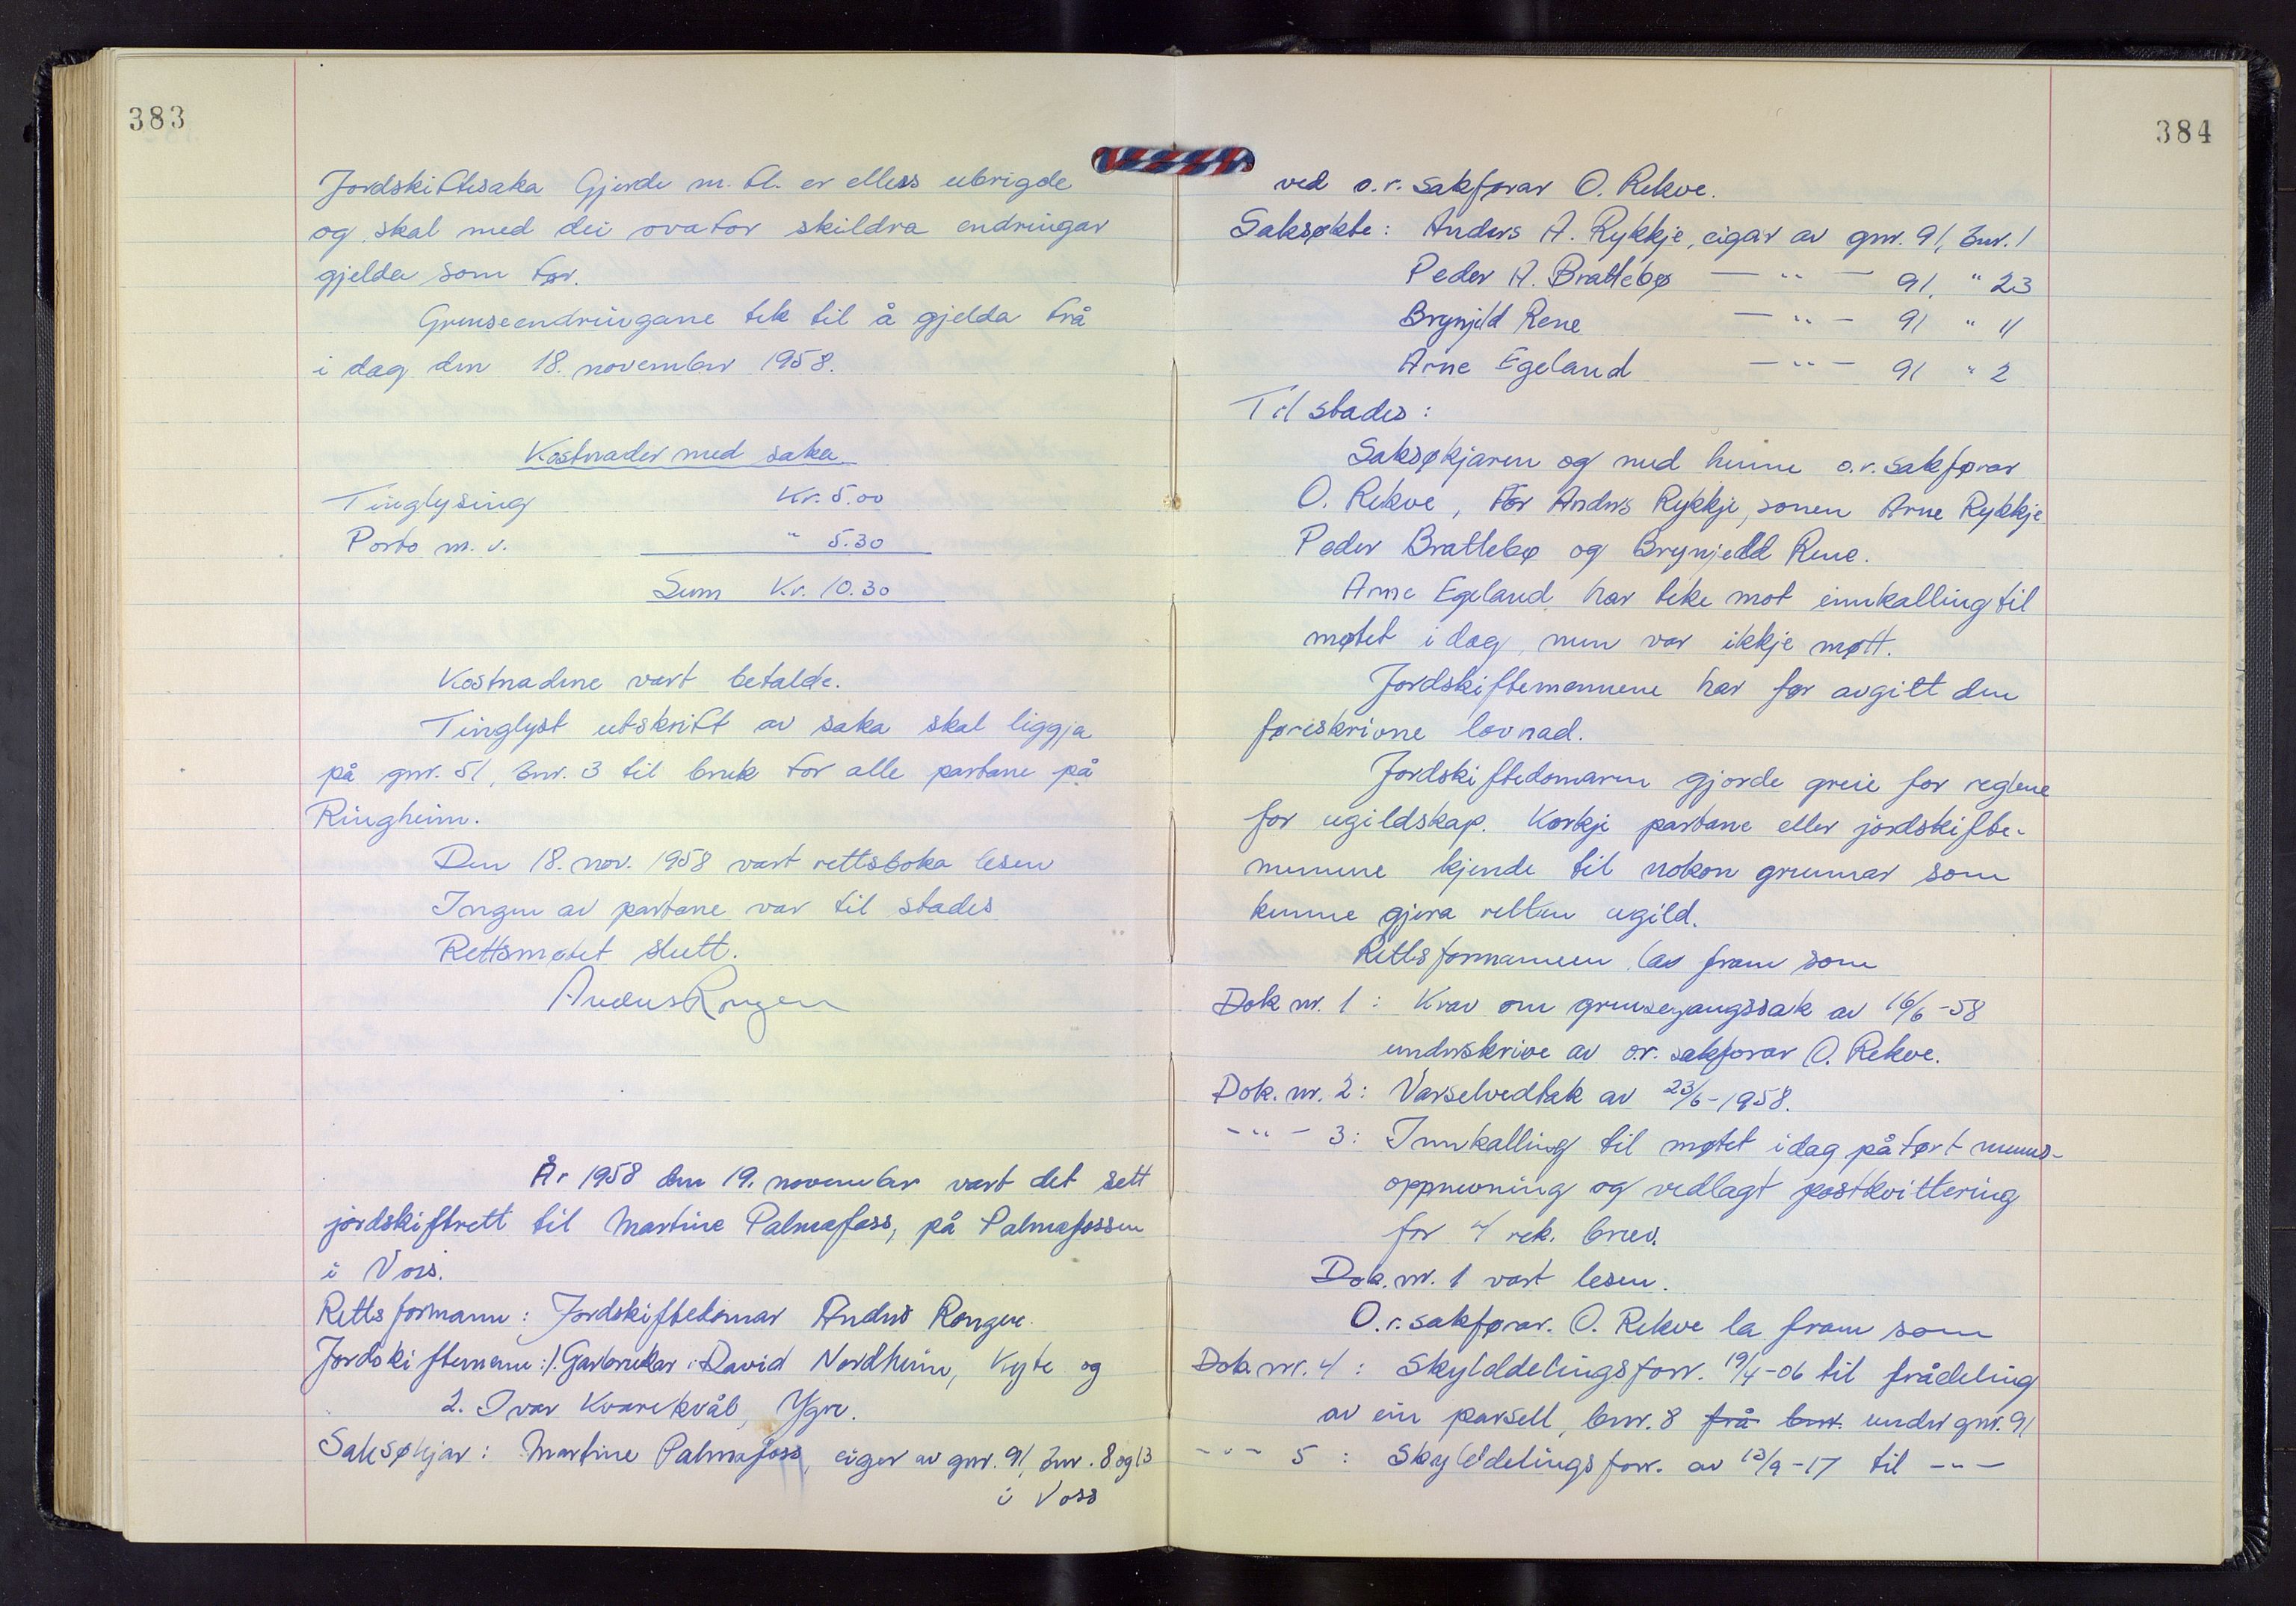 383
Jordskiftesaka Gjerde m. fl. er elless ubrigde
og skal med dei ovafor skildra endringar
gjelda som før.
Grenseendringane tek til å gjelda frå
i dag den 18. november 1958.
Kostnader med saka
Tinglysing Kr. 5.00
Porto m. v. " 5.30
Sum Kr. 10.30
Kostnadene vart betalde.
Tinglyst utskrift av saka skal liggja
på gnr. 51, bnr. 3 til bruk for alle partane på
Ringheim.
Den 18. nov. 1958 vart rettsboka lesen
Ingen av partane var til stades
Rettsmøtet slutt.
Anders Rongen
År 1958 den 19. november vart det sett
jordskifterett til Martine Palmafoss, på Palmafossen
i Voss.
Rettsformann: Jordskiftedomar Anders Rongen.
Jordskiftemenn: 1. Gardbrukar David Nordheim, Kyte og
2. Ivar Kvarekvål, Ygre.
Saksøkjar: Martine Palmafoss, eigar av gnr. 91, bnr. 8 og 13
i Voss
384
ved o.r. sakførar O. Rekve.
Saksøkte: Anders A. Rykkje, eigar av gnr. 91, bnr. 1
Peder A. Brattebø — " — 91, " 23
Brynjeld Rene — " — 91 " 4
Arne Egeland — " — 91 " 2
Til stades:
Saksøkjaren og med henne o.r. sakførar
O. Rekve, for Anders Rykkje, sonen Arne Rykkje
Peder Brattebø og Brynjeld Rene.
Arne Egeland har teke mot innkalling til
møtet i dag, men var ikkje møtt.
Jordskiftemennene har før avgitt den
føreskrivne lovnad.
Jordskiftedomaren gjorde greie for reglene
for ugildskap. Korkje partane eller jordskifte-
mennene kjende til nokon grunnar som
kunne gjera retten ugild.
Rettsformannen la fram som
Dok nr. 1 : Krav om grensegangssak av 16/6-58
underskrive av o.r. sakførar O. Rekve.
Dok. nr. 2: Varselvedtak av 23/6-1958.
— " — 3: Innkalling til møtet i dag påført menns-
oppnemning og vedlagt postkvittering
for 4 rek. brev.
Dok. nr. 1 vart lesen.
O.r. sakførar. O. Rekve la fram som
Dok. nr. 4 : Skylddelingsforr. 19/4-06 til frådeling
av ein parsell, bnr. 8 frå bnr. under gnr. 91
— " — 5 : Skylddelingsforr. av 13/9-17 til — " —